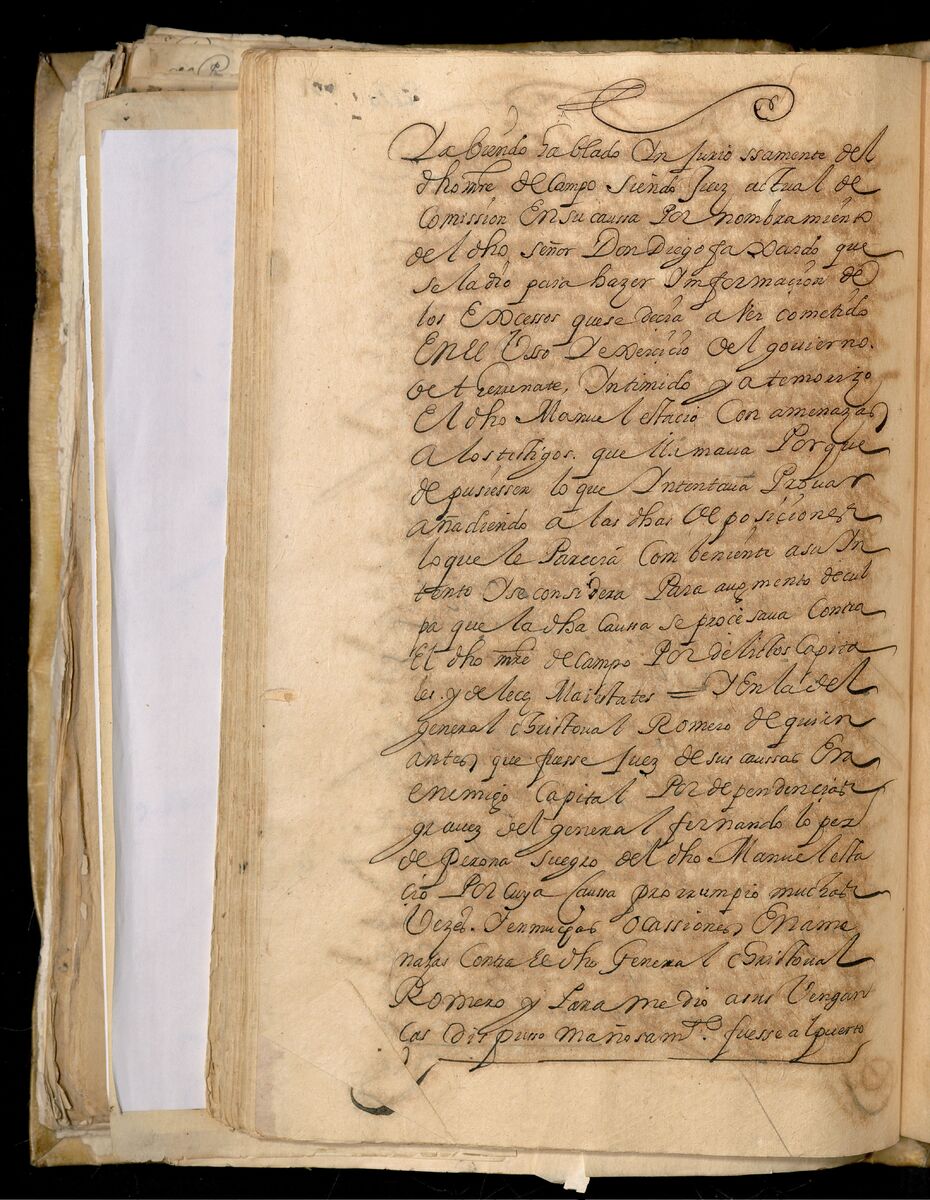 Yabiendo hablado Yn Juriossamente del
dho mre de Campo siendo Juez actual de
Comission En su caussa Por nombramiento
del dho señor Don Diego faxardo que
se la dio para hazer Ynformacion de
los Excessos que se decia aver cometido
En el Usso Y exercicio del govierno.
de therrenate, Yntimido y atemorizo
El dho Manuel estacio Con amenazas
a los testigos. que llamava Porque
depusiessen lo que Yntentava Provar
añadiendo a las dhas deposiciones
lo que le Parecia Combeniente a su Yn
tento Y se considera Para augmento de cul
pa que la dha caussa se processava Contra
El dho mre de Campo Por delictos Capita
les. y de lece Maiestates = Y En la del
general christoval Romero de quien
antes que fuesse Juez de sus caussas Era
enemigo Capital Por dependencias
gravez del general fernando lopez
de perona suegro del dho Manuel esta
cio Por cuya Caussa prorrumpio muchas
Vezes. Y en muchas ocassiones En ame
nazas Contra El dho General christoval
Romero y Para medio a sus Vengan
cas Dispusso mañosamte. fuesse al puerto